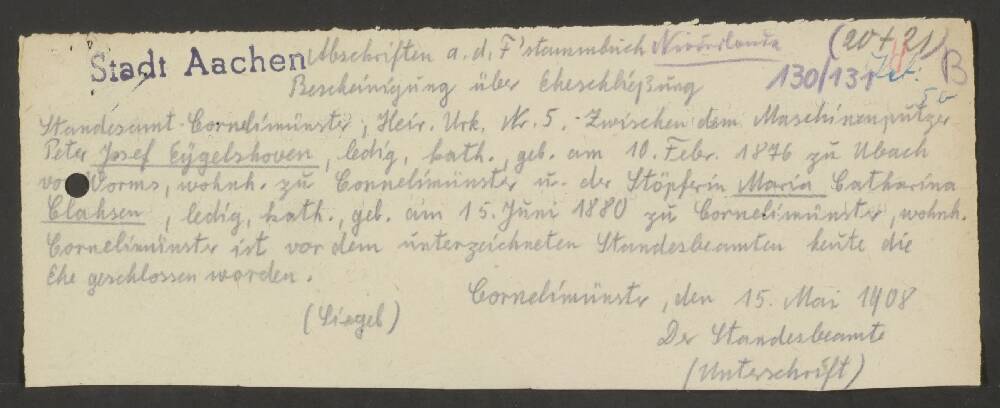 Stadt Aachen Abschriften a. d. F'stammbuch Niederlande (20 + 21)
Bescheinigung über Eheschließung 130/131 B
Standesamt Cornelimünster, Heir. Urk. Nr. 5. - Zwischen dem Maschinenputzer
Peter Josef Eÿgelshoven, ledig, kath., geb. am 10. Febr. 1876 zu Ubach
Worms, wohnh. zu Cornelimünster u. der Stöpferin Maria Catharina
Clahsen, ledig, kath., geb. am 15. Juni 1880 zu Cornelimünster, wohnh.
Cornelimünster ist vor dem unterzeichneten Standesbeamten heute die
Ehe geschlossen worden.
Cornelimünster, den 15. Mai 1908
(Siegel)
Der Standesbeamte
(Unterschrift)